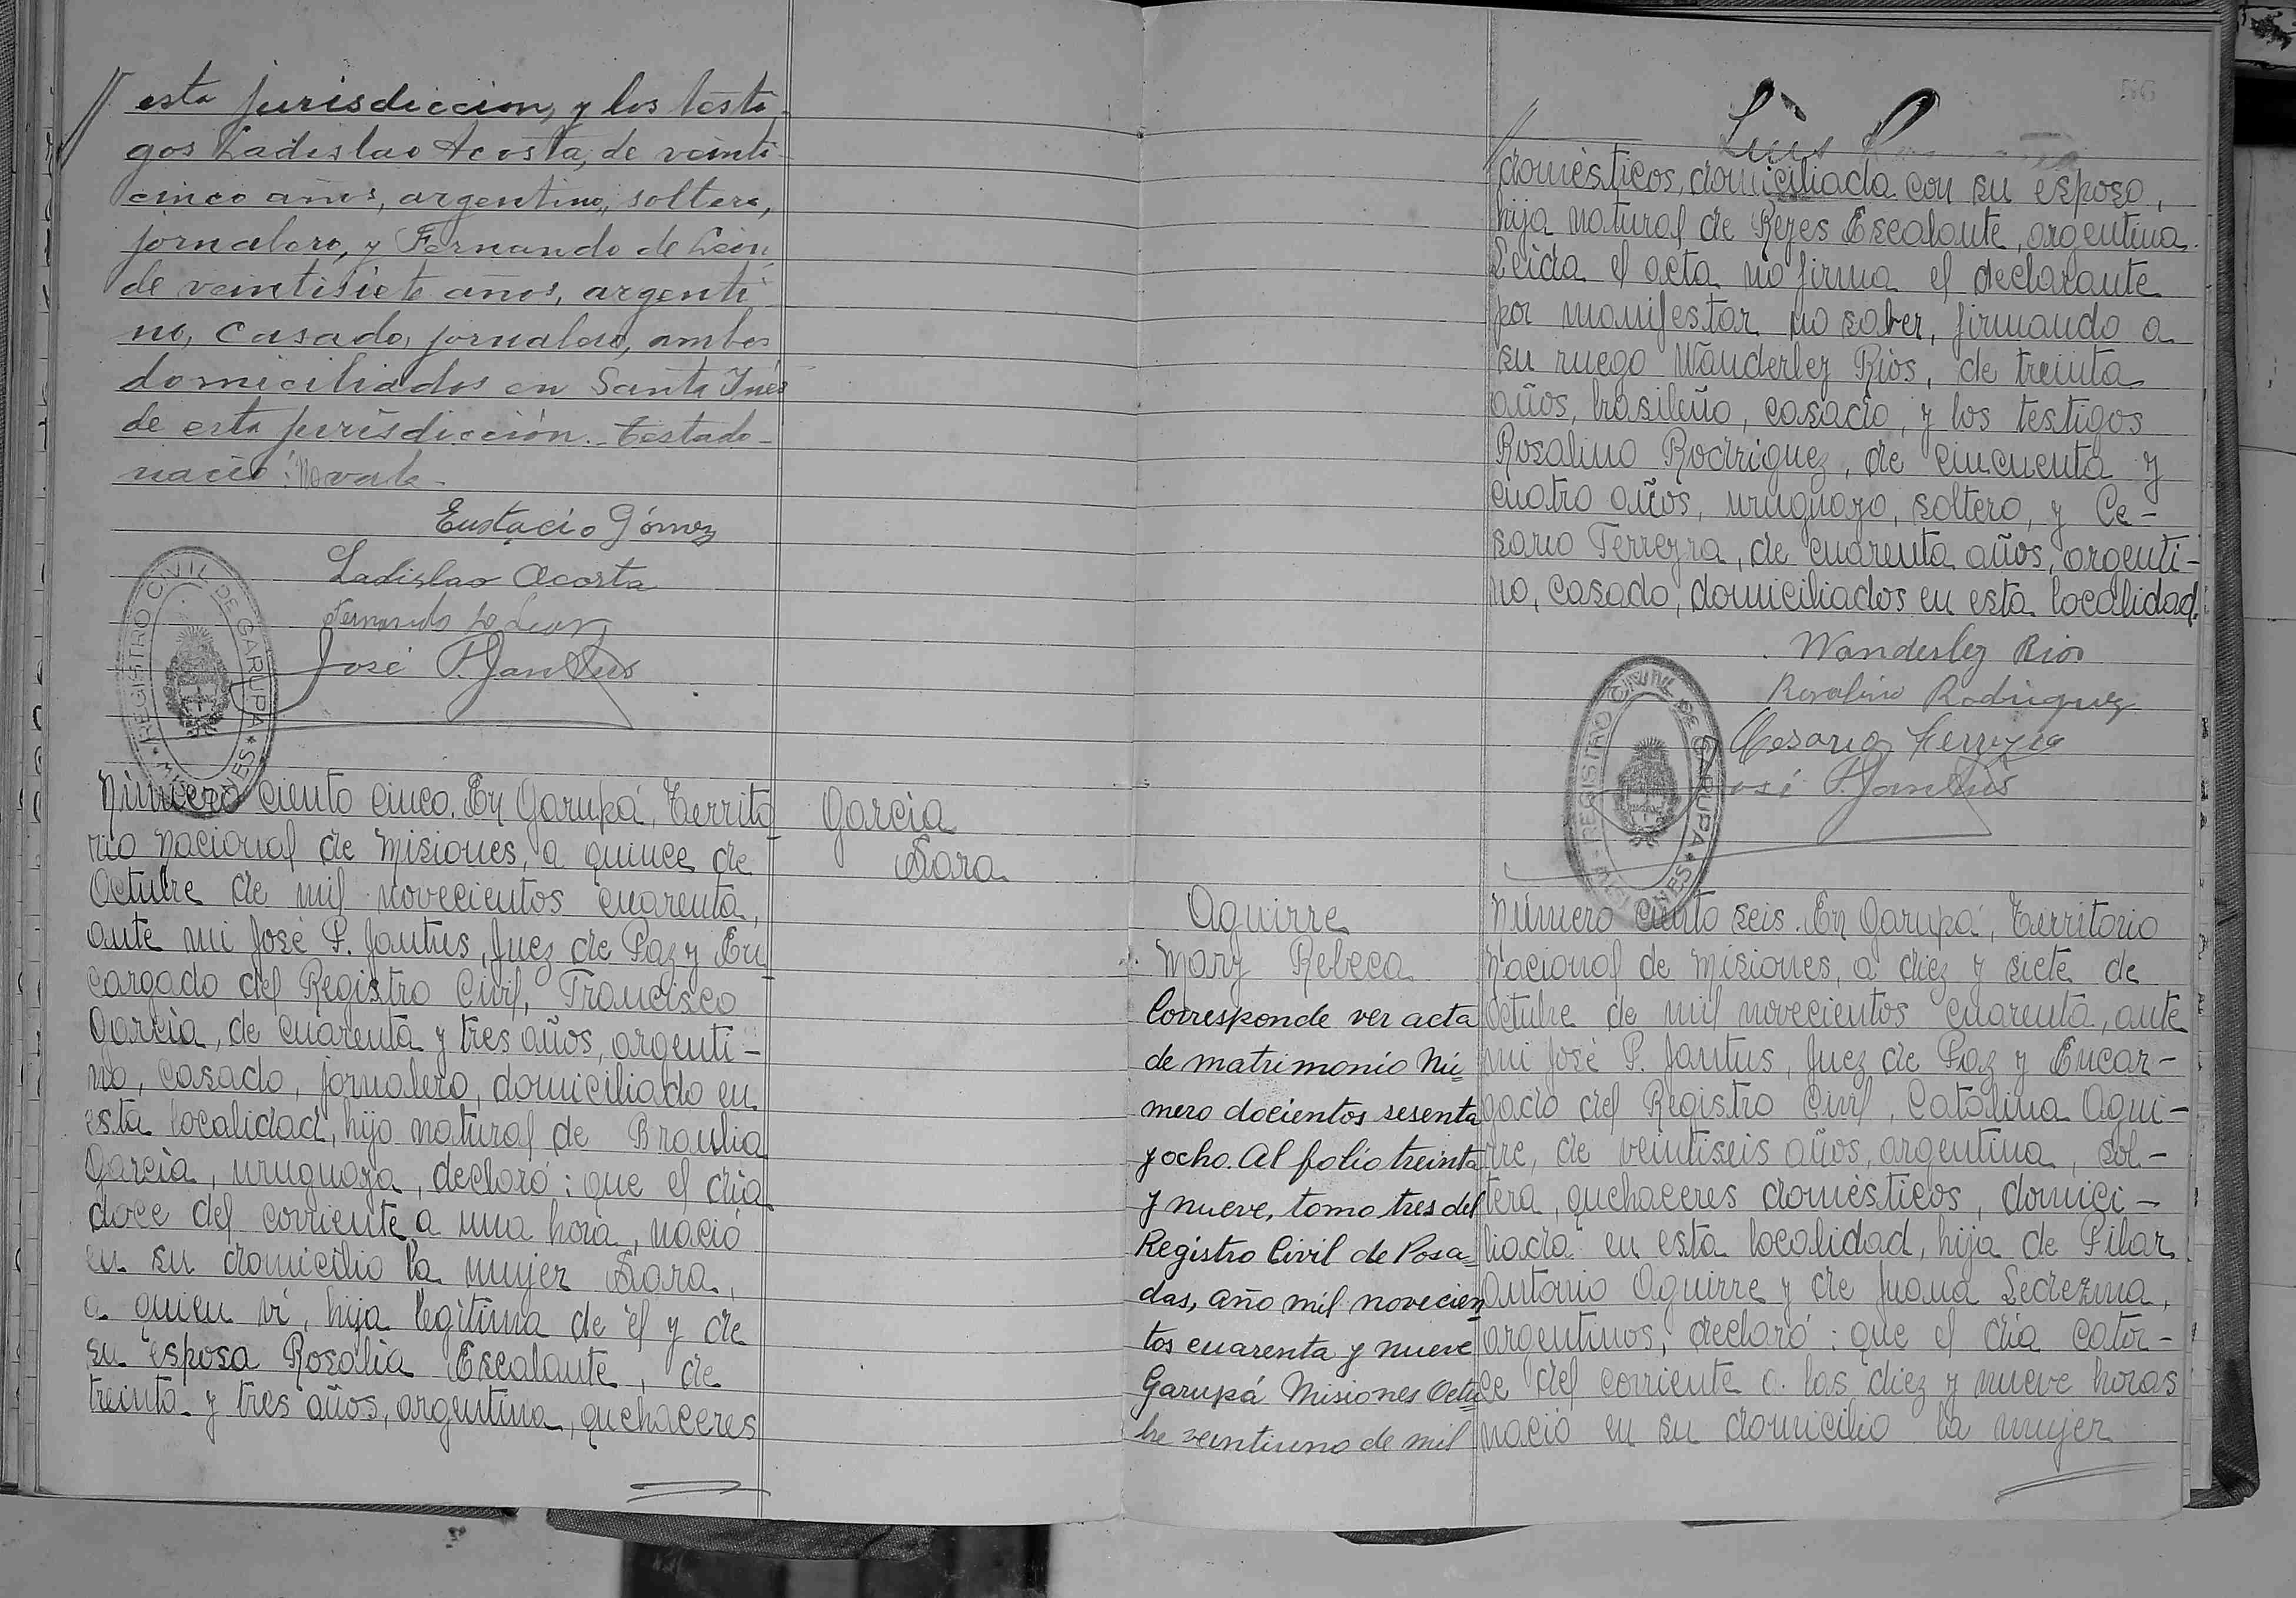 esta jurisdiccion, y los testi-
gos Ladislao Acosta, de veinti-
cinco años, argentino, soltero,
jornalero, y Fernando de León,
de veintisiete años, argenti-
no, casado, jornalero, ambos
domiciliados en Santa Inés
de esta jurisdicción. Testado-
nació: No vale.
Eustacio Gómez
Ladislao Acosta
Fernando de Leon
José P. Jantus
REGISTRO CIVIL DE GARUPA * MISIONES *
Número ciento cinco. En Garupá, Territo-
rio Nacional de Misiones, a quince de
Octubre de mil novecientos cuarenta,
ante mi José P. Jantus, Juez de Paz y En-
cargado del Registro Civil, Francisco
García, de cuarenta y tres años, argenti-
no, casado, jornalero, domiciliado en
esta localidad, hijo natural de Braulia
García, uruguaya, declaró: que el día
doce del corriente a una hora, nació
en su domicilio la mujer Sara,
a quien ví, hija legítima de él y de
su esposa Rosalía Escalante, de
treinta y tres años, argentina, quehaceres
García
Sara
56
Luis
domésticos, domiciliada con su esposo,
hija natural de Reyes Escalante, argentina.
Leida el acta no firma el declarante
por manifestar no saber, firmando a
su ruego Wanderley Rios, de treinta
años, brasileño, casado, y los testigos
Rosalino Rodriguez, de cincuenta y
cuatro años, uruguayo, soltero, y Ce-
sario Ferreyra, de cuarenta años, argenti-
no, casado, domiciliados en esta localidad.
Wanderley Rios
Rosalino Rodriguez
Cesario Ferreyra
José P. Jantus
REGISTRO CIVIL DE GARUPA * MISIONES *
Aguirre
Mary Rebeca
Corresponde ver acta
de matrimonio Nú-
mero docientos sesenta
y ocho. Al folio treinta
y nueve, tomo tres del
Registro Civil de Posa-
das, año mil novecien
tos cuarenta y nueve
Garupá Misiones Octu
bre veintiuno de mil
Número ciento seis. En Garupá, Territorio
Nacional de Misiones, a diez y siete de
Octubre de mil novecientos cuarenta, ante
mi José P. Jantus, Juez de Paz y Encar-
gado del Registro Civil, Catalina Agui-
rre, de veintiseis años, argentina, sol-
tera, quehaceres domésticos, domici-
liada en esta localidad, hija de Pilar
Antonio Aguirre y de Juana Ledezma,
argentinos, declaró: que el día cator-
ce del corriente a las diez y nueve horas
nació en su domicilio la mujer